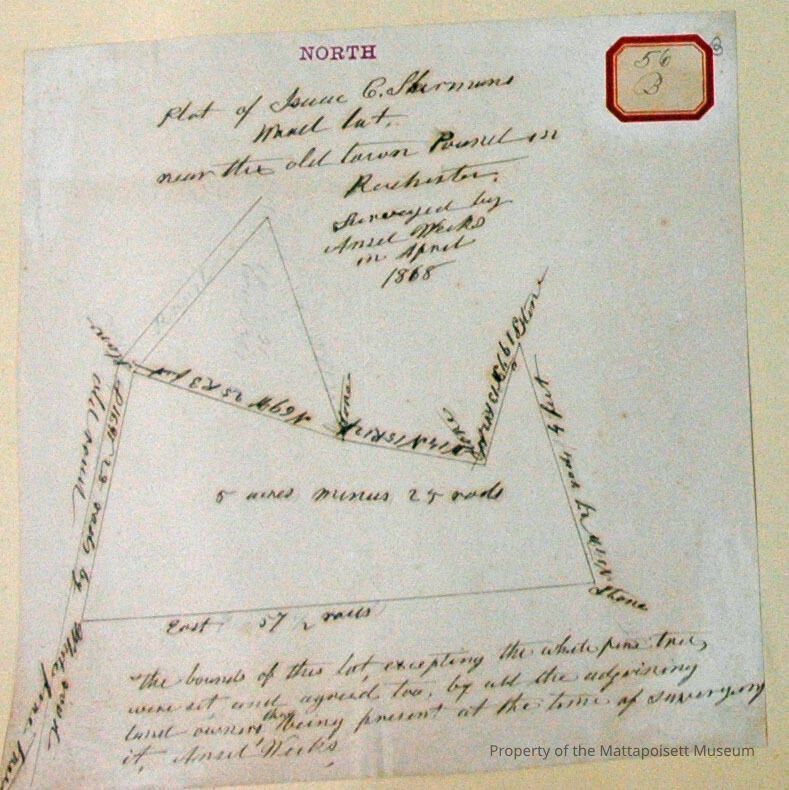 NORTH
56
B
Plot of Isaac C. Shermans
Wood lot.
near the old town Pound in
Rochester.
Surveyed by
Ansel Weeks
in April
1868
Stone
N69W 25R3
Stone
Stone
Stone
old road
rods by
5 acres minus 25 rods
Stone
East 57 1/2 rods
White pine tree
road
The bounds of this lot, excepting the white pine tree,
were set and agreed too, by all the adjoining
land owners they being present at the time of surveying
it, Ansel Weeks
Property of the Mattapoisett Museum